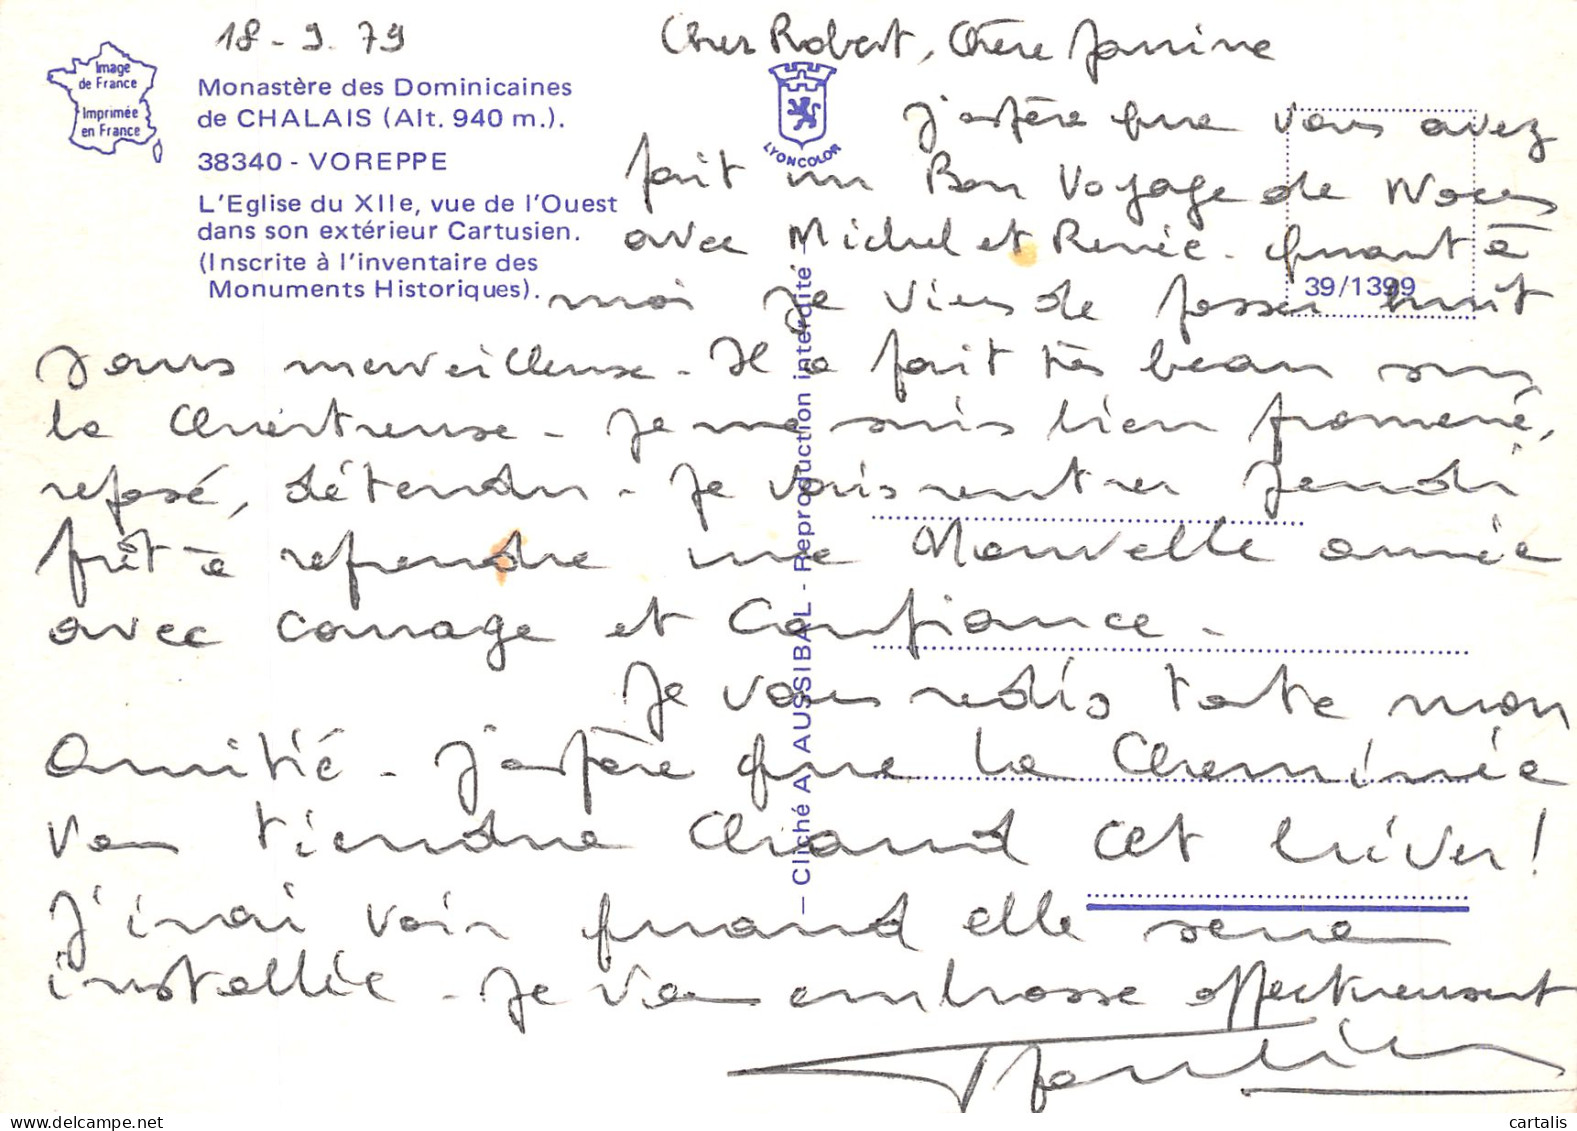 18-9-79
Image
de France
Imprimée
en France
Monastère des Dominicaines
de CHALAIS (Alt. 940 m.).
38340 - VOREPPE
L'Eglise du XIIe, vue de l'Ouest
dans son extérieur Cartusien.
(Inscrite à l'inventaire des
Monuments Historiques).
LYONCOLOR
— Cliché A. AUSSIBAL - Reproduction interdite —
39/1399
Cher Robert, Chère Janine
J'espère que vous avez
fait un Bon Voyage de Noces
avec Michel et Renée. Quant à
moi je viens de passer huit
jours merveilleux. Il a fait très beau sur
la Chartreuse. Je me suis bien promené,
reposé, détendu. Je vais rentrer Jeudi
prêt à reprendre une Nouvelle année
avec courage et Confiance.
Je vous redis toute mon
Amitié. J'espère que la Cheminée
vous tiendra Chaud cet hiver!
J'irai voir quand elle sera
installée. Je vous embrasse affectueusement